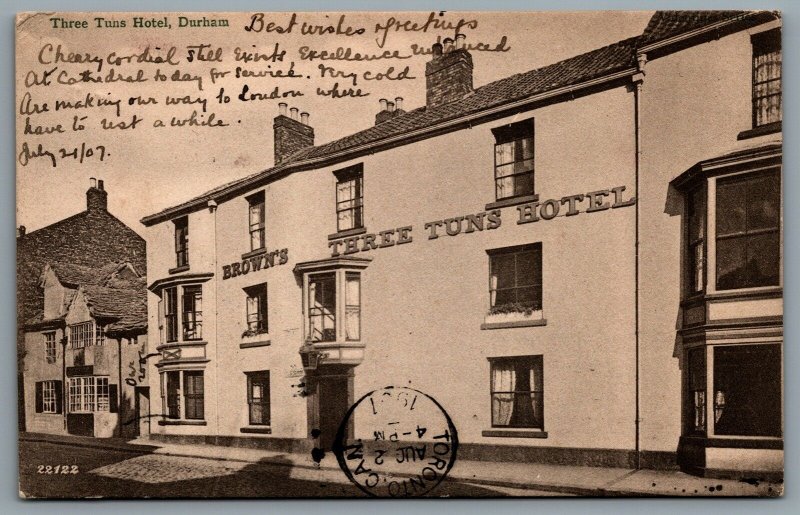 Three Tuns Hotel, Durham
Best wishes & greetings
Cheery cordial still exists. Excellence
At Cathedral today for service. Very cold
Are making our way to London where
have to rest a while.
July 21/07.
BROWN'S THREE TUNS HOTEL
Our
room
TORONTO CAN.
4 - PM
AUG 2
1907
22122